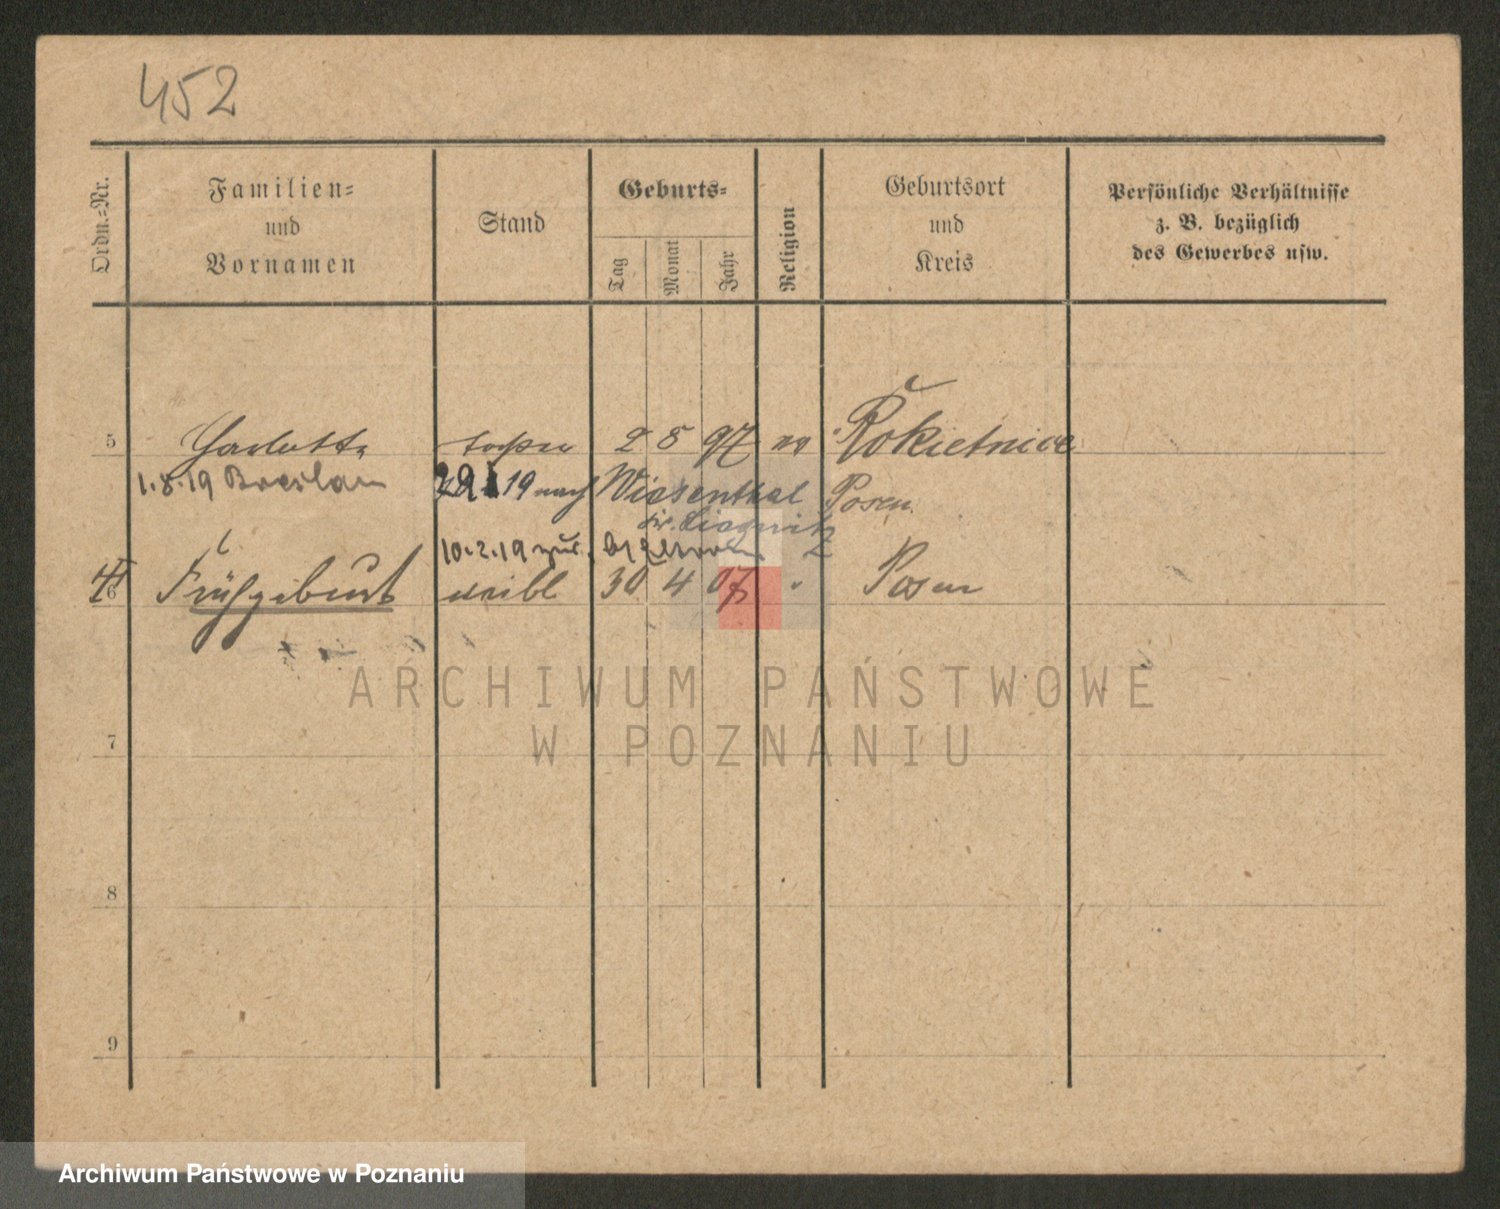 452
Ordn.=Nr.
Familien=
und
Vornamen
Stand
Geburts=
Tag
Monat
Jahr
Religion
Geburtsort
und
Kreis
Persönliche Verhältnisse
z. B. bezüglich
des Gewerbes usw.
5 2 8 97 Rokietnice
1.8.19 Breslau 19 nach Wiesenthal Posen
Kr. Liegnitz
10.2.19 zur.
6 Frühgeburt weibl 30 4 07 " Posen
7
8
9
ARCHIWUM PAŃSTWOWE
W POZNANIU
Archiwum Państwowe w Poznaniu